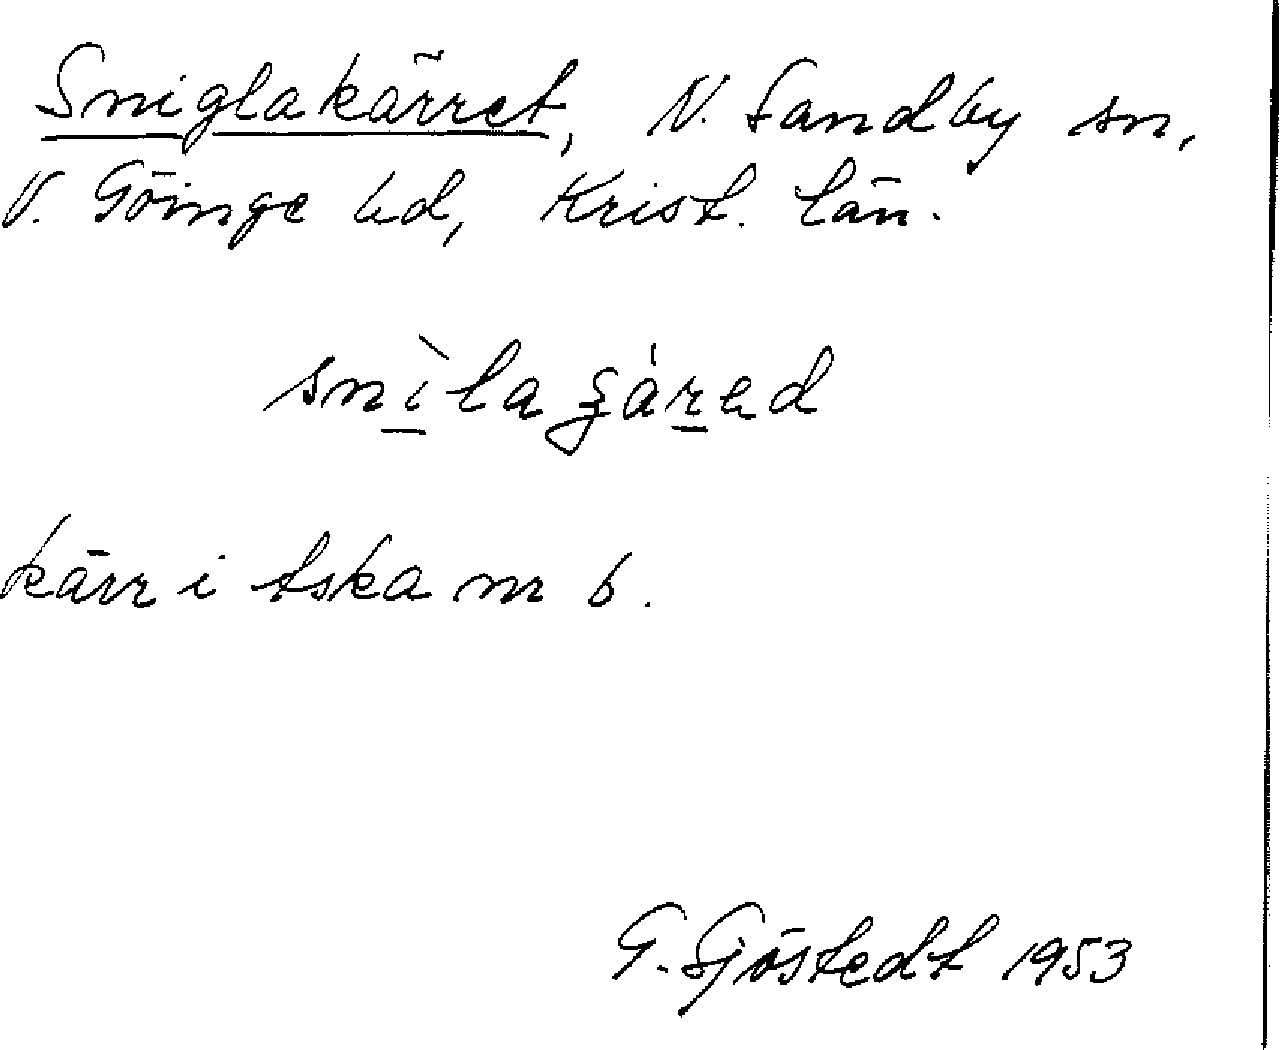 Sniglakärret, N. Sandby sn,
V. Göinge hd, Krist. län.
kärr i Aska nr 6.
G. Sjöstedt 1953